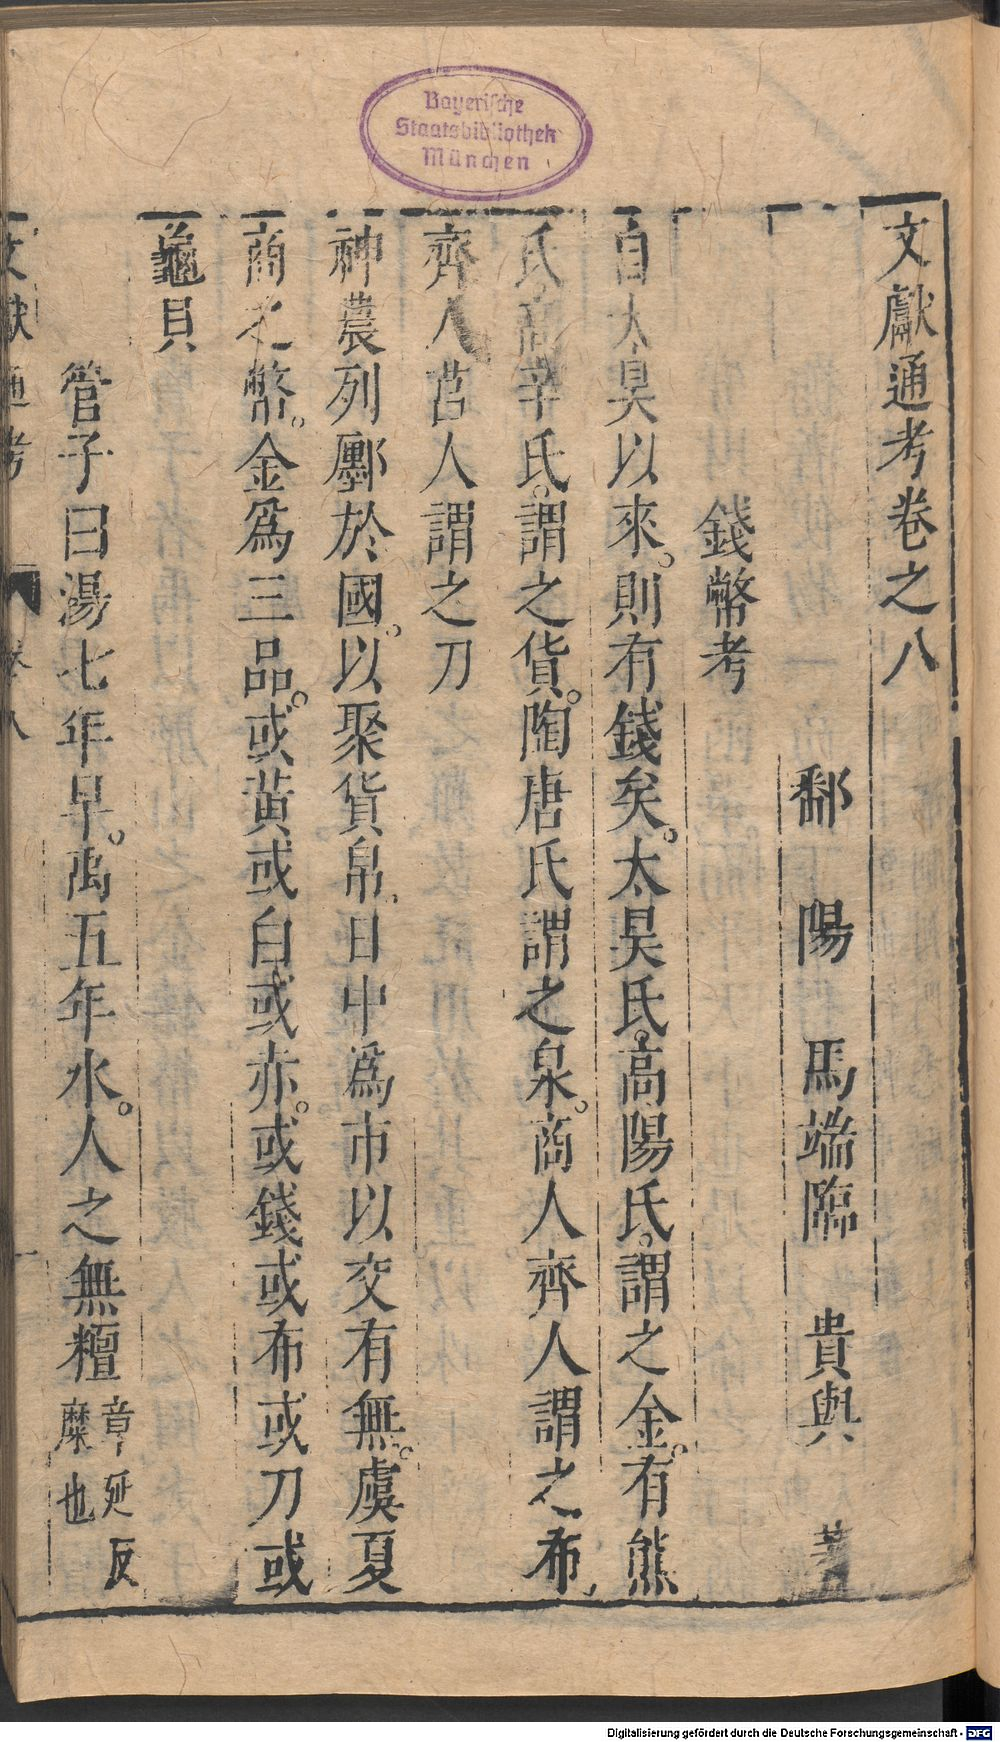 Bayerische
Staatsbibliothek
München
文獻通考卷之八
鄱陽馬端臨貴與著
錢幣考
自太昊以來。則有錢矣。太昊氏。高陽氏。謂之金。有熊
氏高辛氏。謂之貨。陶唐氏謂之泉。商人齊人謂之布、
齊人莒人謂之刀
神農列廛於國。以聚貨帛、日中爲市以交有無。虞夏
商之幣。金爲三品。或黃或白或赤。或錢或布或刀或
龜貝
管子曰湯七年旱。禹五年水。人之無𥼷章延反
糜也
文獻通考
卷八
一
Digitalisierung gefördert durch die Deutsche Forschungsgemeinschaft - DFG